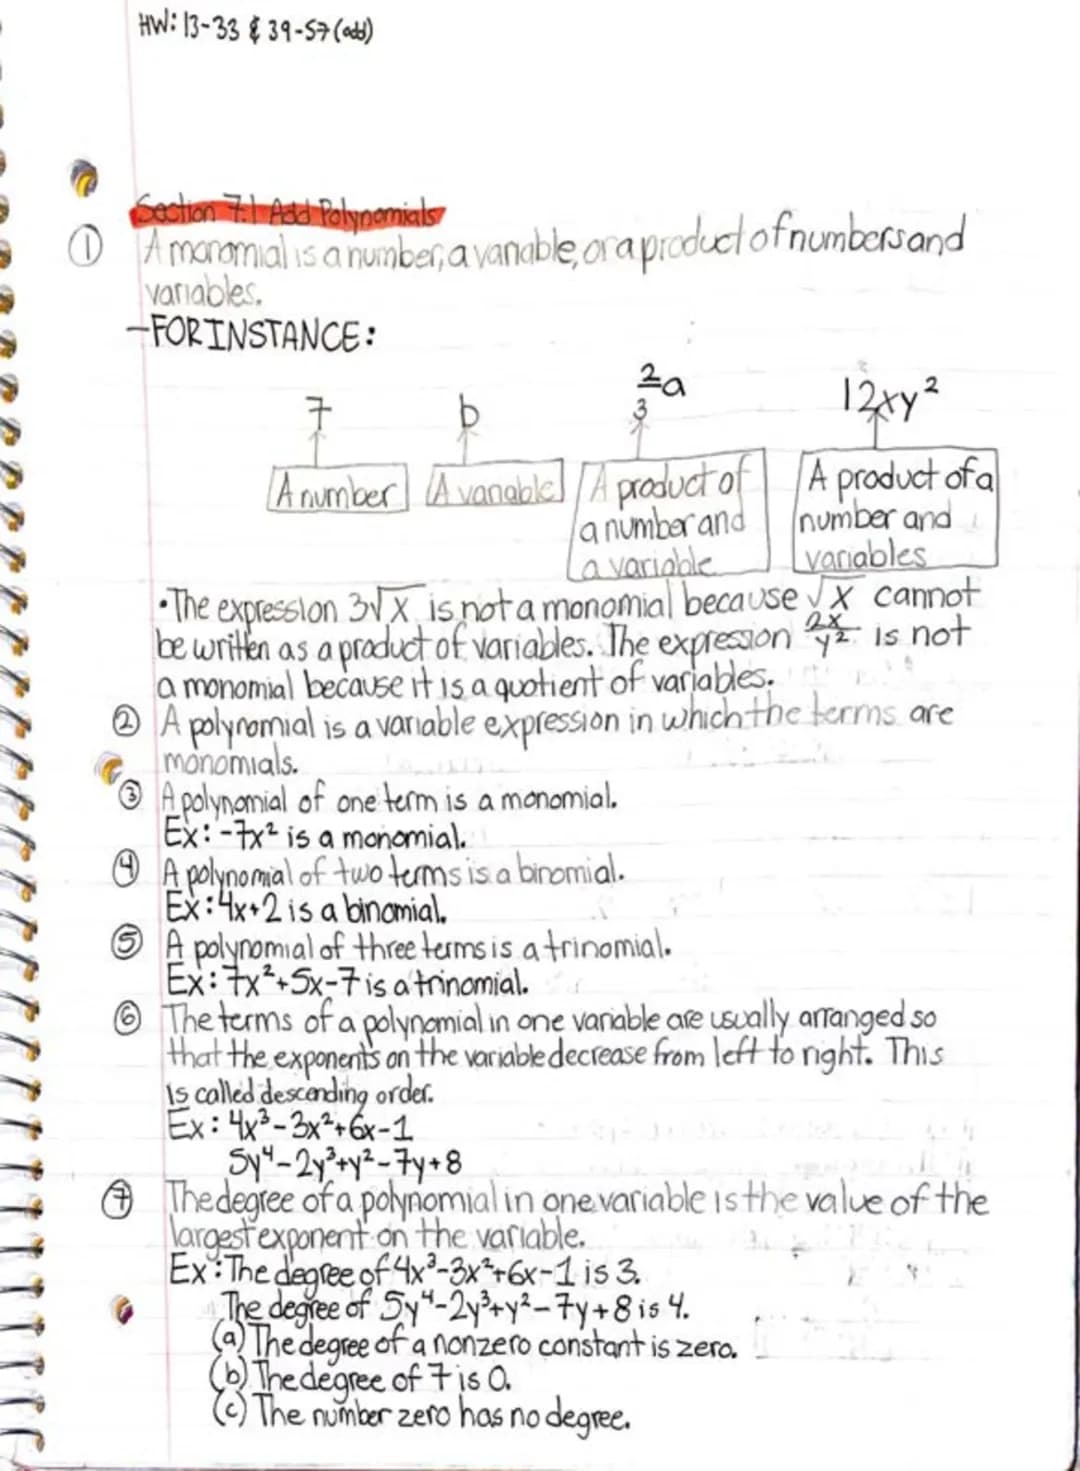 HW: 13-33 & 39-57 (odd)
Section 7.1 Add Polynomials
① A monomial is a number, a variable, or a product of numbers and
variables.
-FOR INSTANCE:
7 b 2/3 a 12xy²
A number
A variable
A product of
a number and
a variable
A product of a
number and
variables
•The expression 3√x is not a monomial because √x cannot
be written as a product of variables. The expression 2x/y² is not
a monomial because it is a quotient of variables.
② A polynomial is a variable expression in which the terms are
monomials.
③ A polynomial of one term is a monomial.
Ex: -7x² is a monomial.
④ A polynomial of two terms is a binomial.
Ex: 4x+2 is a binomial.
⑤ A polynomial of three terms is a trinomial.
Ex: 7x²+5x-7 is a trinomial.
⑥ The terms of a polynomial in one variable are usually arranged so
that the exponents on the variable decrease from left to right. This
is called descending order.
Ex: 4x³-3x²+6x-1
5y⁴-2y³+y²-7y+8
⑦ The degree of a polynomial in one variable is the value of the
largest exponent on the variable.
Ex: The degree of 4x³-3x²+6x-1 is 3.
The degree of 5y⁴-2y³+y²-7y+8 is 4.
(a) The degree of a nonzero constant is zero.
(b) The degree of 7 is 0.
(c) The number zero has no degree.